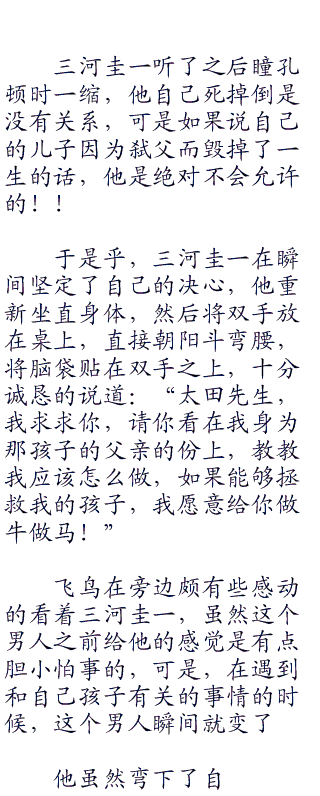 三河圭一听了之后瞳孔
顿时一缩，他自己死掉倒是
没有关系，可是如果说自己
的儿子因为弑父而毁掉了一
生的话，他是绝对不会允许
的！！
于是乎，三河圭一在瞬
间坚定了自己的决心，他重
新坐直身体，然后将双手放
在桌上，直接朝阳斗弯腰，
将脑袋贴在双手之上，十分
诚恳的说道：“太田先生，
我求求你，请你看在我身为
那孩子的父亲的份上，教教
我应该怎么做，如果能够拯
救我的孩子，我愿意给你做
牛做马！”
飞鸟在旁边颇有些感动
的看着三河圭一，虽然这个
男人之前给他的感觉是有点
胆小怕事的，可是，在遇到
和自己孩子有关的事情的时
候，这个男人瞬间就变了
他虽然弯下了自